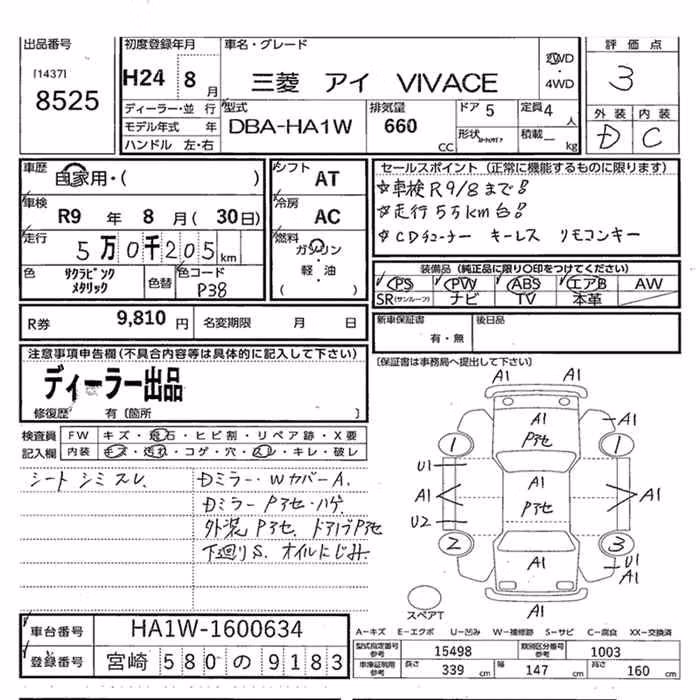 出品番号
[1437]
8525
初度登録年月
H24 8 月
ディーラー・並 行
モデル年式 年
ハンドル 左・右
車名・グレード
三菱 アイ VIVACE
2WD
・
4WD
型式
DBA-HA1W
排気量
660 CC
ドア 5
形状
定員 4 人
積載 — kg
評価点
3
外装 内装
D C
車歴
自家用・( )
車検
R9 年 8 月 ( 30日)
走行
5 万 0 千 205 km
色
サクラピンク
メタリック
色替
色コード
P38
シフト
AT
冷房
AC
燃料
ガソリン
・
軽・油
( )
セールスポイント (正常に機能するものに限ります)
☆車検R9/8まで!
☆走行5万km台!
☆CDチューナー キーレス リモコンキー
装備品 (純正品に限り○印をつけてください)
PS PW ABS エアB AW
SR(サンルーフ) ナビ TV 本革
R券 9,810 円 名変期限 月 日
新車保証書
有・無
後日品
注意事項申告欄(不具合内容等は具体的に記入して下さい)
ディーラー出品
修復歴 有 [箇所 ]
[保証書は事務局へ提出して下さい]
検査員
記入欄
FW キズ・飛石・ヒビ割・リペア跡・X要
内装 キズ・汚れ・コゲ・穴・スレ・キレ・破レ
シート シミ スレ
Dミラー・Wカバー A.
Dミラー Pアセ・ハゲ
外装 Pアセ. ドアノブPアセ
下廻りS. オイルにじみ
A1 A1
A1
Pアセ
A1
1 1
U1
A1
A1
Pアセ
A1
U2
2 3
A1
U1
A1
A1
スペアT
車台番号
HA1W-1600634
登録番号
宮崎 580 の 9183
A−キズ E−エクボ U−凹み W−補修跡 S−サビ C−腐食 XX−交換済
型式指定番号
参考
15498
類別区分番号
参考
1003
車検証記載
参考
長さ 339 cm
幅 147 cm
高さ 160 cm